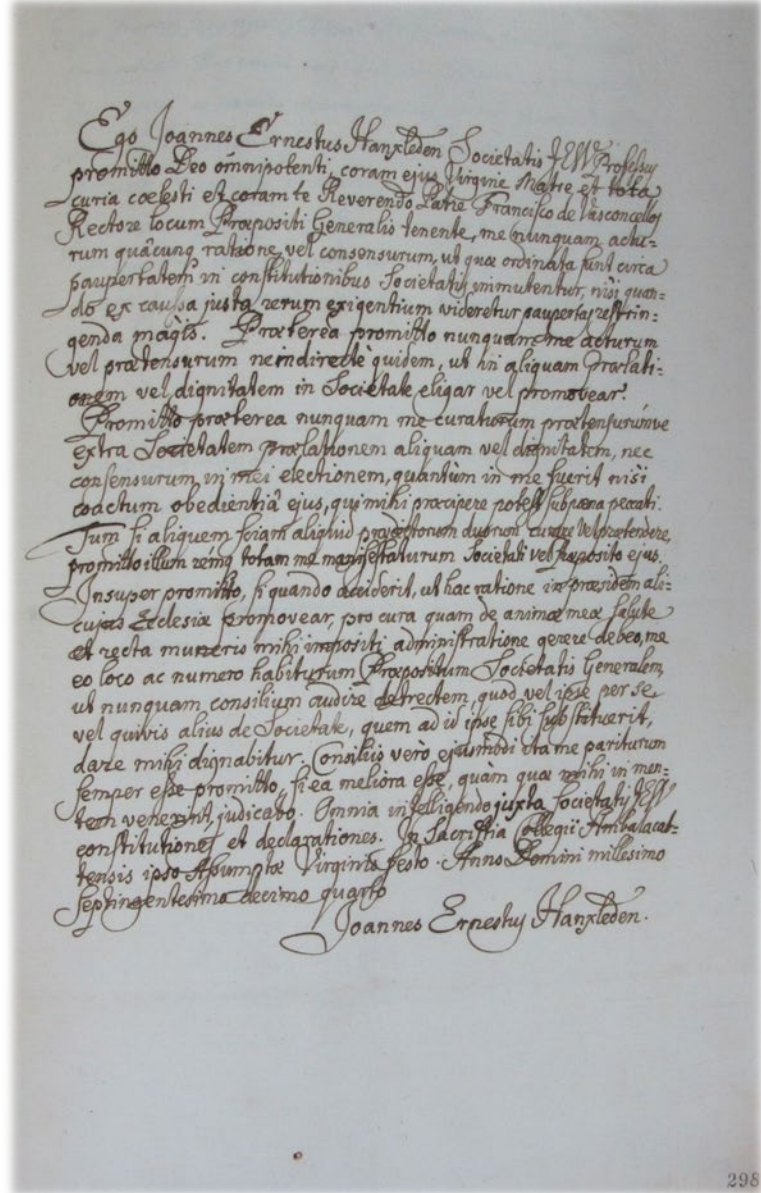 Ego Joannes Ernestus Hanxleden Societatis JESU Professus
promitto Deo omnipotenti, coram ejus Virgine Matre et tota
curia coelesti et coram te Reverendo Patre Francisco de Vasconcellos
Rectore locum Præpositi Generalis tenente, me nunquam actu=
rum quâcunq ratione, vel consensurum, ut quæ ordinata sunt circa
paupertatem in constitutionibus Societatis, immutentur, nisi quan=
do ex caussa justa rerum exigentium videretur paupertas restrin=
genda magis. Præterea promitto nunquam me acturum
vel prætensurum ne indirectè quidem, ut in aliquam Prælati=
onem vel dignitatem in Societate eligar vel promovear.
Promitto præterea nunquam me curaturum prætensurumve
extra Societatem prælationem aliquam vel dignitatem, nec
consensurum in mei electionem, quantùm in me fuerit nisi
coactum obedientiâ ejus, qui mihi præcipere potest sub pæna peccati.
Tum si aliquem sciam aliquid prædictorum duorum curare vel prætendere,
promitto illum remq totam me manifestaturum Societati vel Præposito ejus.
Insuper promitto, si quando acciderit, ut hac ratione in præsidem ali=
cujus Ecclesiæ promovear, pro cura quam de animæ meæ salute
et recta muneris mihi impositi administratione gerere debeo, me
eo loco ac numero habiturum Præpositum Societatis Generalem,
ut nunquam consilium audire detrectem, quod vel ipse per se
vel quivis alius de Societate, quem ad id ipse sibi substituerit,
dare mihi dignabitur. Consiliis verò ejusmodi ita me pariturum
semper esse promitto, si ea meliora esse, quàm quæ mihi in men=
tem venerint, judicabo. Omnia intelligendo juxta Societatis JESU
constitutiones et declarationes. In Sacristia Collegii Ambalacat=
tensis ipso Assumptæ Virginis festo. Anno Domini millesimo
septingentesimo decimo quarto
Joannes Ernestus Hanxleden.
298